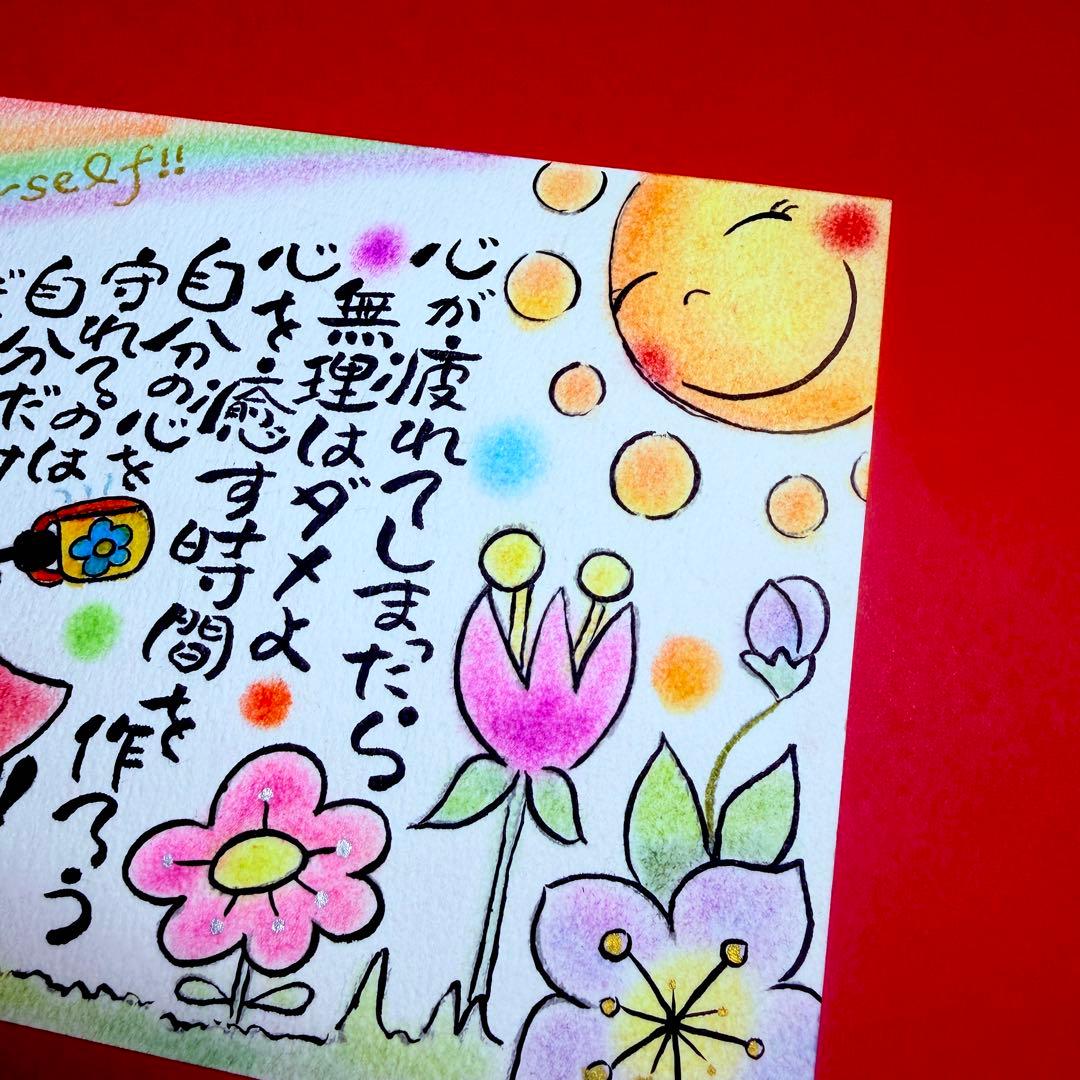 rself!!
心が疲れてしまったら
無理はダメよ
心を癒す時間を作ろう
自分の心を
守れるのは
自分だけ